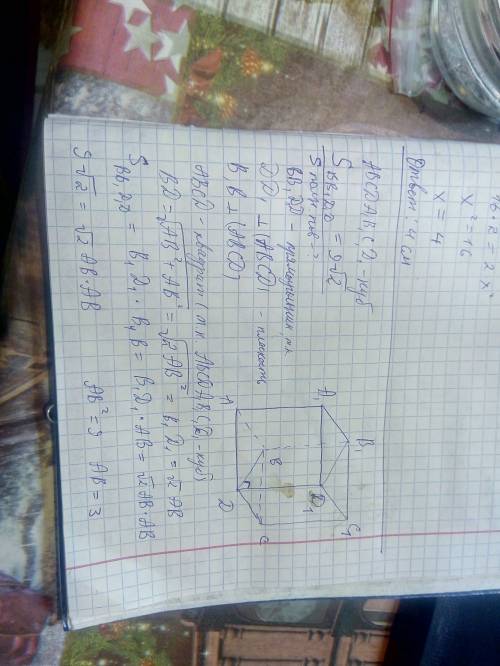 96·2 = 2x²
x² = 16
x = 4
Ответ: 4 см
ABCDA₁B₁C₁D₁ - куб
S BB₁D₁D = 9√2
S полн. пов - ?
BB₁D₁D - прямоугольник, т.к
DD₁ ⊥ (ABCD) - плоскость
B₁B ⊥ (ABCD)
ABCD - квадрат (т.к ABCDA₁B₁C₁D₁ - куб)
BD = √AB² + AB² = √2AB² = B₁D₁ = √2 AB
S BB₁D₁D = B₁D₁ · B₁B = B₁D₁ · AB = √2 AB · AB
9√2 = √2 AB · AB AB² = 9 AB = 3
A₁ B₁ C₁ D₁
A B C D